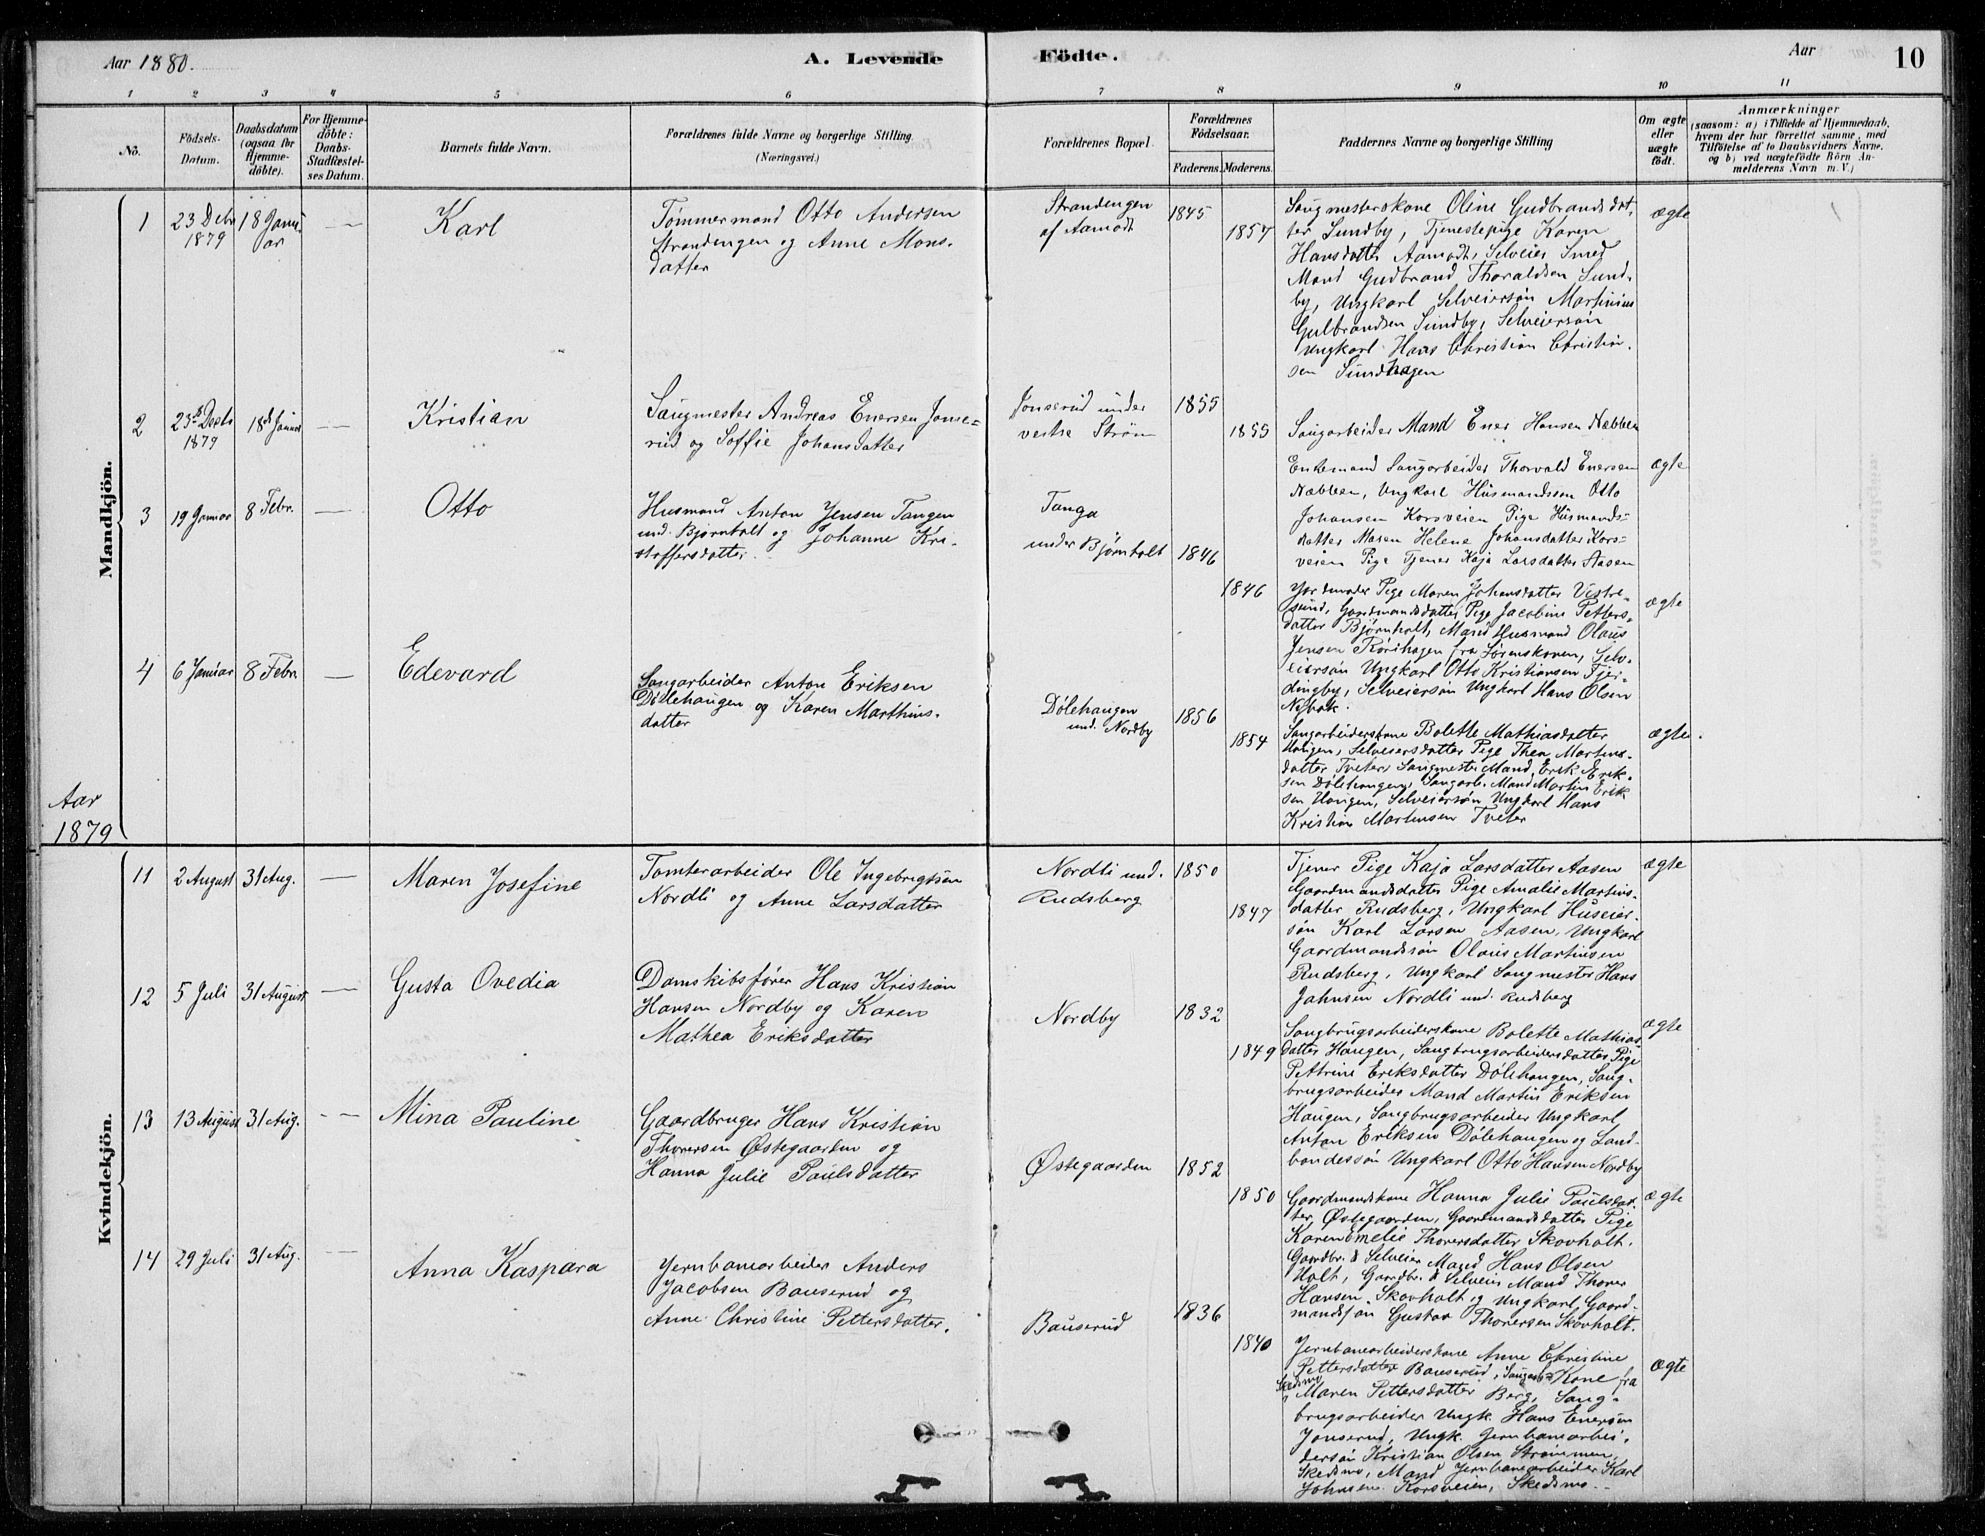 Aar 1880.
A. Levende Födte.
Aar
10
1 2 3 4 5 6 7 8 9 10 11
No.
Födsels-Datum.
Daabsdatum (ogsaa for Hjemme-döbte).
For Hjemme-döbte: Daabs-Stadfæstel-ses Datum.
Barnets fulde Navn.
Forældrenes fulde Navne og borgerlige Stilling. (Næringsvei.)
Forældrenes Bopæl.
Forældrenes Födselsaar.
Faderens. Moderens.
Faddernes Navne og borgerlige Stilling
Om ægte eller uægte födt.
Anmærkninger
(saasom: a) i Tilfælde af Hjemmedaab,
hvem der har forrettet samme, med
Tilföielse af to Daabsvidners Navne,
og b) ved uægtefödte Börn An-
melderens Navn m.V.)
Mandkjön.
1
23 Debr 1879
18 Janu-ar
— —
Karl
Tømmermand Otto Andersen
Strandengen og Anne Mons-
datter
Strandengen
af Aamodt
1845
1857
Saugmesterskone Oline Gudbrandsdat-
ter Sundby, Tjenestepige Karen
Hansdatter Aamodt, Selveier Smed
Mand Gudbrand Thoraldsen Sund-
by, Ungkarl Selveiersøn Martinius
Gulbrandsen Sundby, Selveiersøn
Ungkarl Hans Christian Christian-
sen Sundhagen
ægte
2
23 Decb 1879
18d Januar
— —
Kristian
Saugmester Andreas Enersen Jonse-
rud og Soffie Johansdatter
Jonserud under
vestre Strøm
1855
1855
Saugarbeider Mand Ener Hansen Næbben
Enkemand Saugarbeider Thorvald Enersen
Næbben, Ungkarl Husmandssøn Otto
Johansen Korsveien Pige Husmands-
datter Maren Helene Johansdatter Kors-
veien Pige Tjener Kaja Larsdatter Aasen
ægte
3
19 Januar
8 Febr.
—
Otto
Husmand Anton Jensen Tangen
und. Bjørnholt og Johanne Kri-
stoffersdatter
Tanga
under Bjørnholt
1846
1846
Jordmoder Pige Maren Johansdatter Vestre-
sund, Gaardmandsdatter Pige Jacobine Petters-
datter Bjørnholt, Mand Husmand Olaus
Jensen Rørihagen fra Sørenskoven, Selv-
eiersøn Ungkarl Otto Kristiansen Fjer-
dingby, Selveiersøn Ungkarl Hans Olsen
Nybak.
ægte
4
6 Januar
8 Febr.
—
Edevard
Saugarbeider Anton Eriksen
Dølehaugen og Karen Marthins-
datter
Dølehaugen
und. Nordby
1856
1854
Saugarbeiderskone Bolette Mathiasdatter
Haugen, Selveiersdatter Pige Thea Martins-
datter Tveter, Saugmester Mand, Erik Erik-
sen Dølehaugen, Saugarb. Mand Martin Erik
sen Haugen, Selveiersøn Ungkarl Hans
Kristian Martinsen Tveter
ægte.
Aar
1879
Kvindekjön.
11
2 August
31 Aug.
—
Maren Josefine
Tomterarbeider Ole Ingebrigtsen
Nordli og Anne Larsdatter
Nordli und.
Rudsberg
1850
1847
Tjener Pige Kaja Larsdatter Aasen
Gaardmandsdatter Pige Amalie Martins-
datter Rudsberg, Ungkarl Huseier-
søn Karl Larsen Aasen, Ungkarl
Gaardmandssøn Olaus Martinsen
Rudsberg, Ungkarl Saugmester Hans
Jahnsen Nordli und. Rudsberg
ægte
12
5 Juli
31 August
— —
Gusta Ovedia
Damskibsfører Hans Kristian
Hansen Nordby og Karen
Mathea Eriksdatter
Nordby
1832
1849
Saugbrugsarbeiderskone Bolette Mathias-
datter Haugen, Saugbrugsarbeidersdatter Pige
Pettrine Eriksdatter Dølehaugen, Saug-
brugsarbeider Mand Martin Eriksen
Haugen, Saugbrugsarbeider Ungkarl
Anton Eriksen Dølehaugen og Land-
bondessøn Ungkarl Otto Hansen Nordby
ægte
13
13 August
31 Aug.
— —
Mina Pauline
Gaardbruger Hans Kristian
Thorersen Østegaarden og
Hanna Julie Paulsdatter
Østegaarden
1852
1850
Gaardmandskone Hanna Julie Paulsdat-
ter Østegaarden, Gaardmandsdatter Pige
Karen Emelie Thorersdatter Skovholt.
Gaardbr. & Selveier Mand Hans Olsen
Holt, Gaardbr. & Selveier Mand Thorer
Hansen Skovholt og Ungkarl, Gaard-
mandssøn Gustav Thorersen Skovholt.
ægte
14
29 Juli
31 Aug.
— —
Anna Kaspara
Jernbanearbeider Anders
Jacobsen Bauserud og
Anne Christine Pettersdatter.
Bauserud
1836
1840
Jernbanearbeiderskone Anne Christine
Pettersdatter Bauserud, Saugarb. Kone fra
Skedsmo Maren Pettersdatter Berg, Saug-
brugsarbeider Ungk. Hans Enersen
Jonserud, Ungk. Jernbanearbei-
dersøn Kristian Olsen Strømmen
Skedsmo, Mand Jernbanearbeider Karl
Johnsen Korsveien, Skedsmo.
ægte